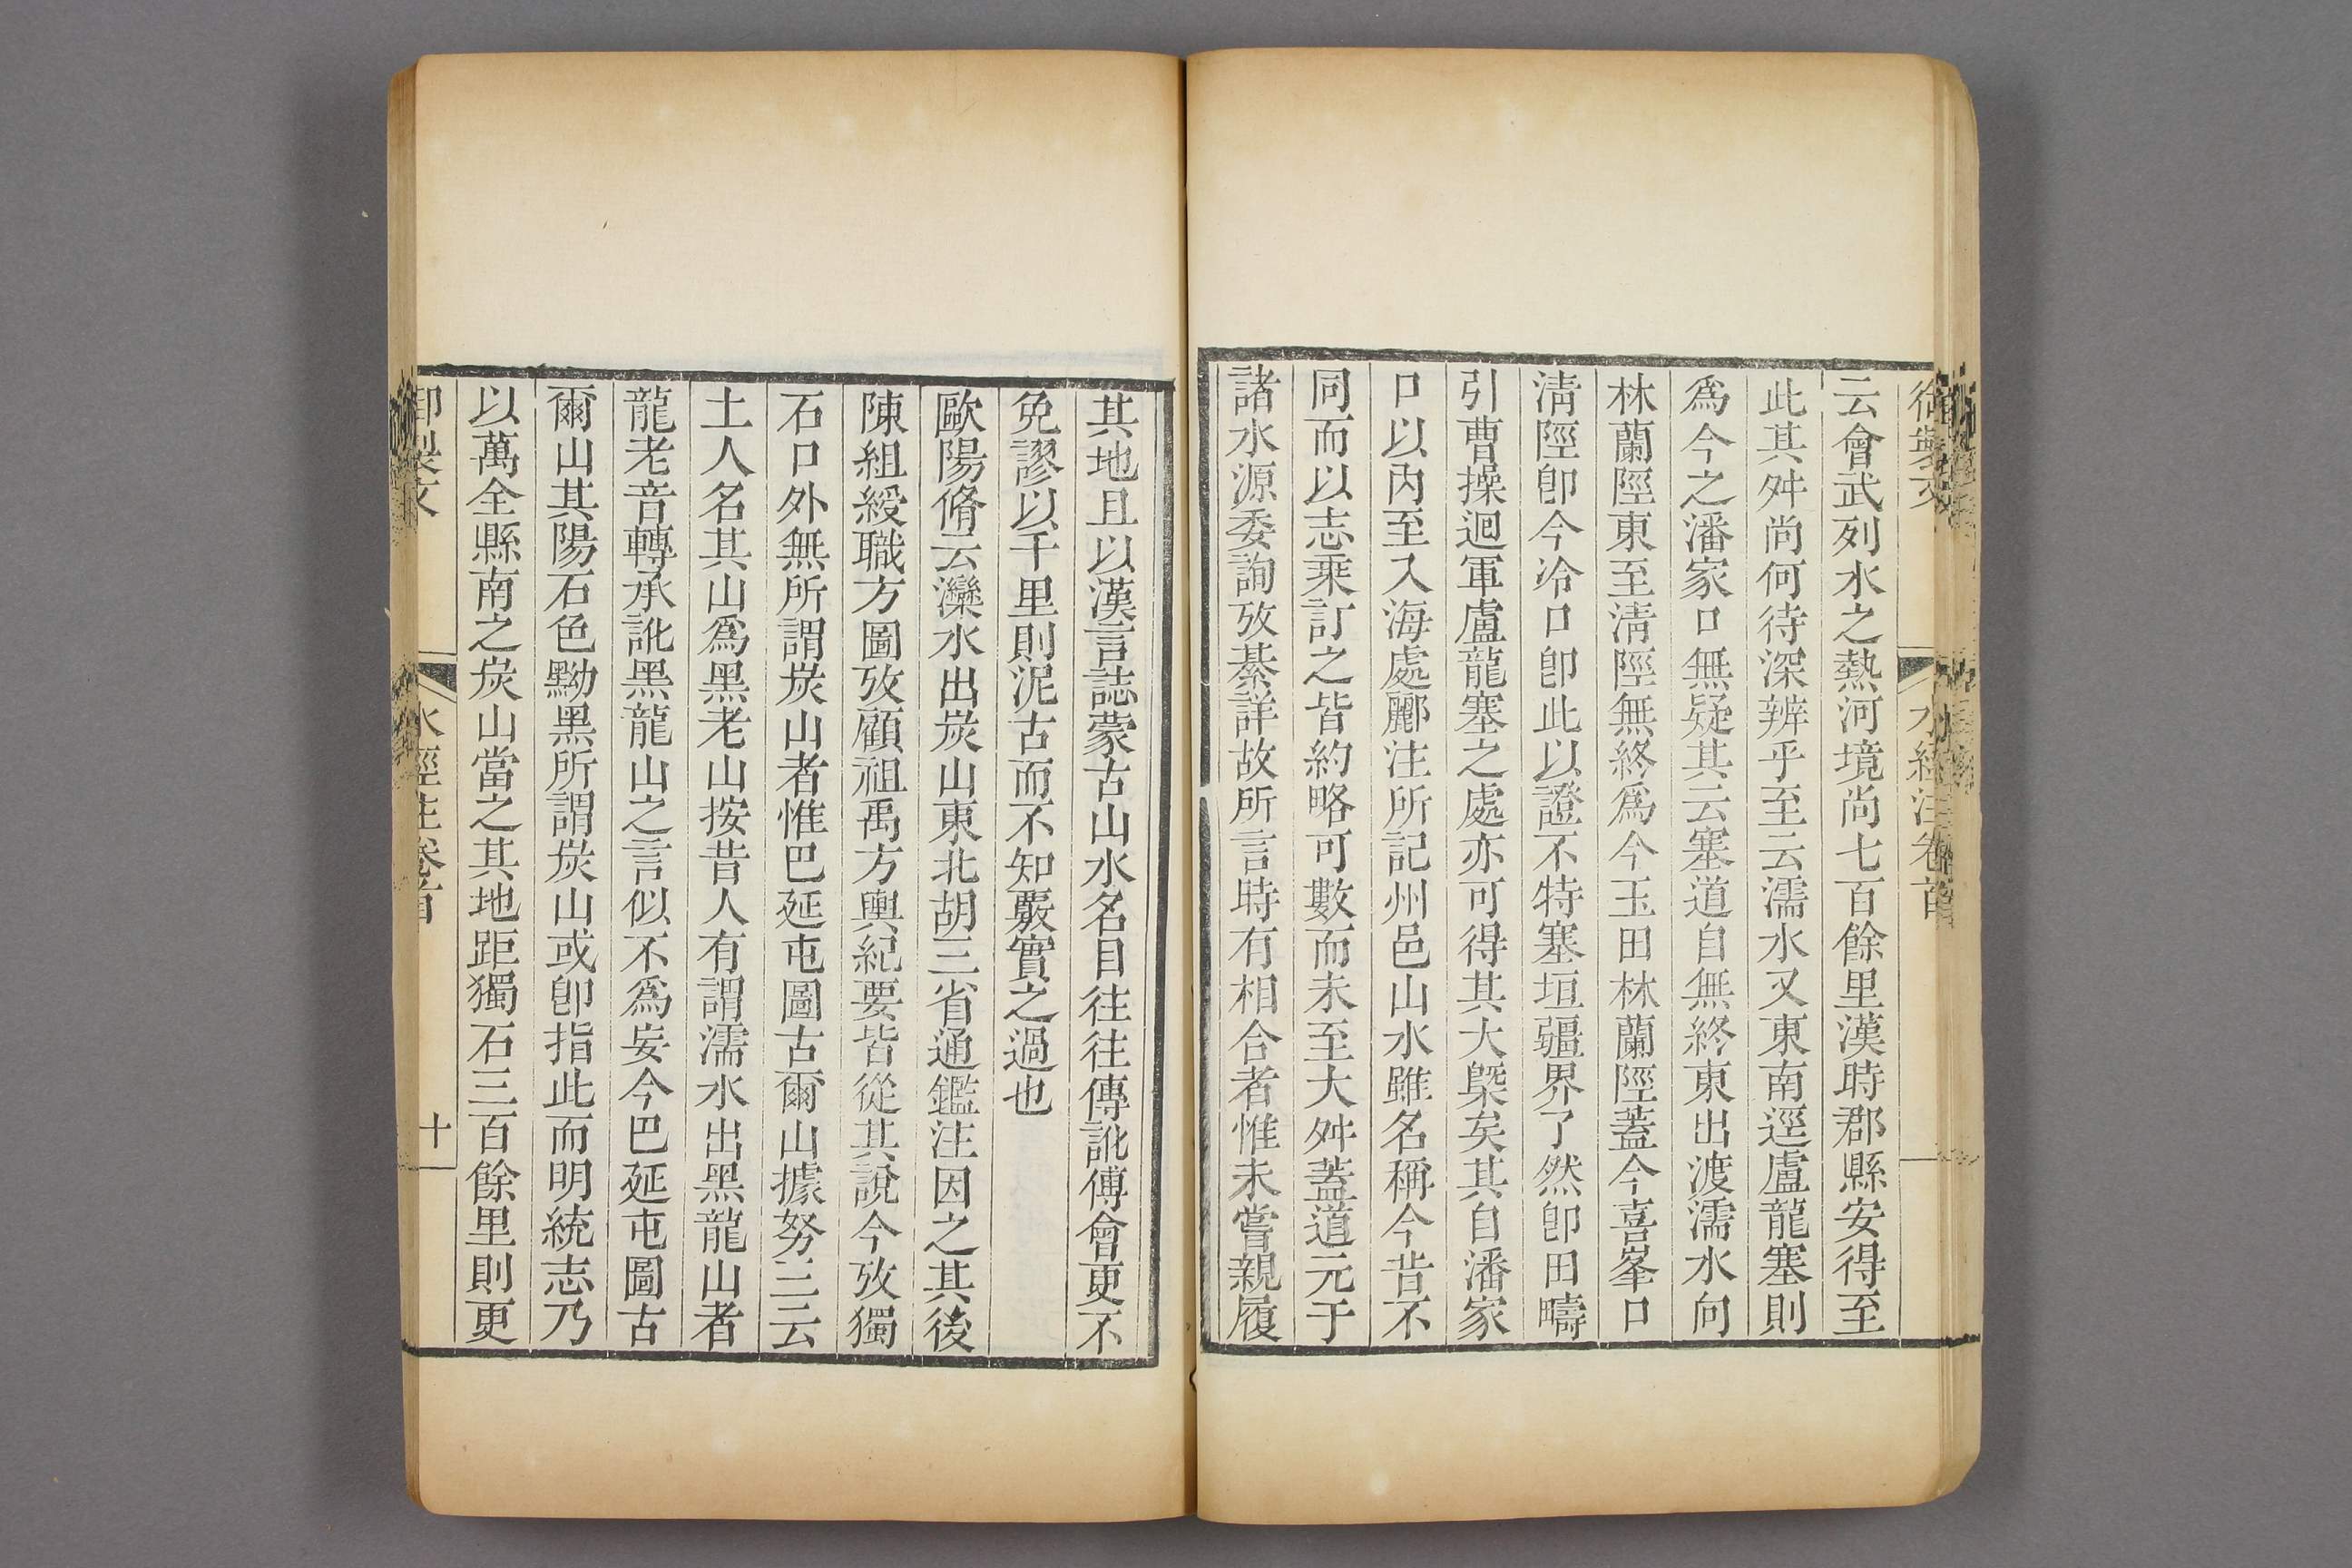 云會武列水之熱河境尚七百餘里漢時郡縣安得至
此其舛尚何待深辨乎至云濡水又東南逕盧龍塞則
爲今之潘家口無疑其云塞道自無終東出渡濡水向
林蘭陘東至淸陘無終爲今玉田林蘭陘蓋今喜峯口
淸陘卽今冷口卽此以證不特塞垣疆界了然卽田疇
引曹操迴軍盧龍塞之處亦可得其大槩矣其自潘家
口以內至入海處酈注所記州邑山水雖名稱今昔不
同而以志乘訂之皆約略可數而未至大舛蓋道元于
諸水源委詢攷綦詳故所言時有相合者惟未嘗親履
其地且以漢言誌蒙古山水名目往往傳訛傅會更不
免謬以千里則泥古而不知覈實之過也
歐陽脩云灤水出炭山東北胡三省通鑑注因之其後
陳組綬職方圖攷顧祖禹方輿紀要皆從其說今攷獨
石口外無所謂炭山者惟巴延屯圖古爾山據努三云
土人名其山爲黑老山按昔人有謂濡水出黑龍山者
龍老音轉承訛黑龍山之言似不爲妄今巴延屯圖古
爾山其陽石色黝黑所謂炭山或卽指此而明統志乃
以萬全縣南之炭山當之其地距獨石三百餘里則更
御製文
水經注卷首
十